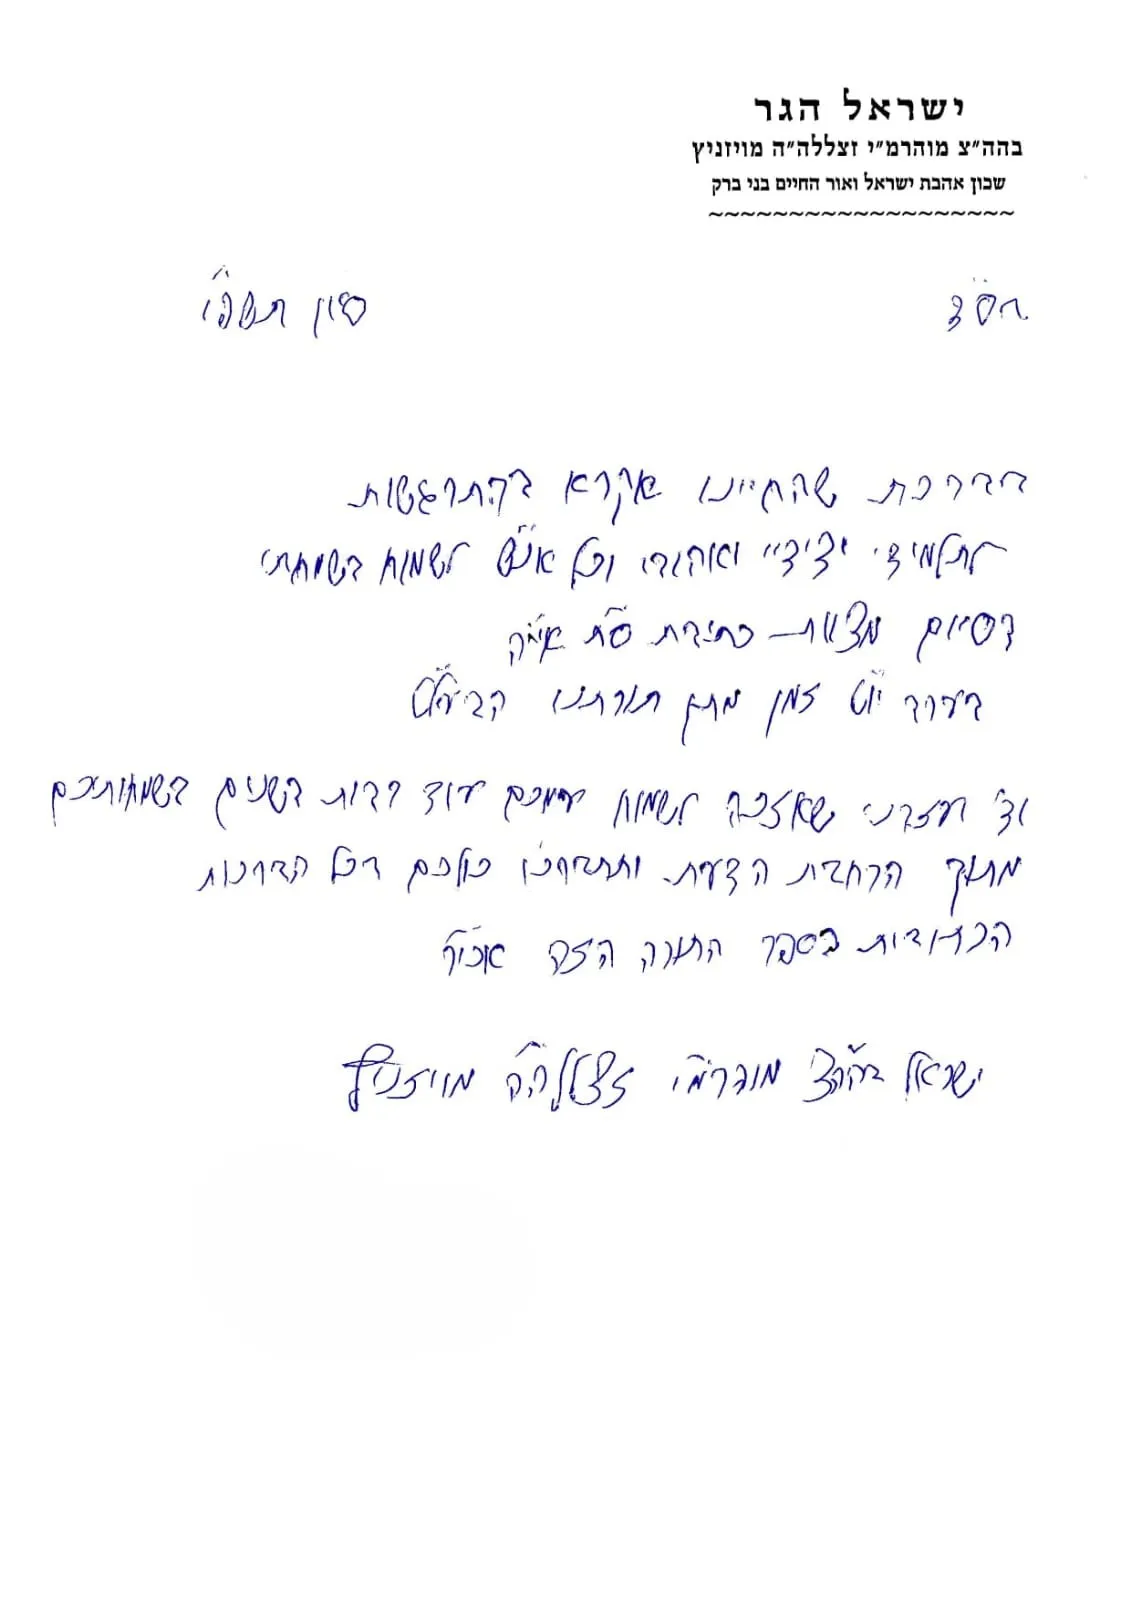 ישראל הגר
בהה"צ מוהרמ"י זצללה"ה מויזניץ
שכון אהבת ישראל ואור החיים בני ברק
~~~~~~~~~~~~~~~~~~~
בס"ד
סיון תשפ"ו
בברכת שהחיינו אקרא בהתרגשות
לתלמידי ידידיי ואהובי וכל אנ"ש לשמוח בשמחתי
בסיום מצות כתיבת ס"ת אי"ה
בערב יו"ט זמן מתן תורתנו הבעל"ט
וד' יעזרני שאזכה לשמוח עמכם עוד רבות בשנים בשמחותיכם
מתוך הרחבת הדעת ותתברכו כולכם בכל הברכות
הכתובות בספר התורה הזה אכי"ר
ישראל בהה"צ מוהרמ"י זצללה"ה מויזניץ